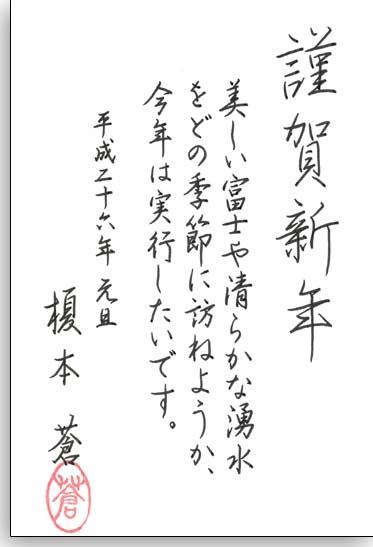 謹賀新年
美しい富士や清らかな湧水
をどの季節に訪ねようか、
今年は実行したいです。
平成二十六年 元旦
榎本 蒼
蒼